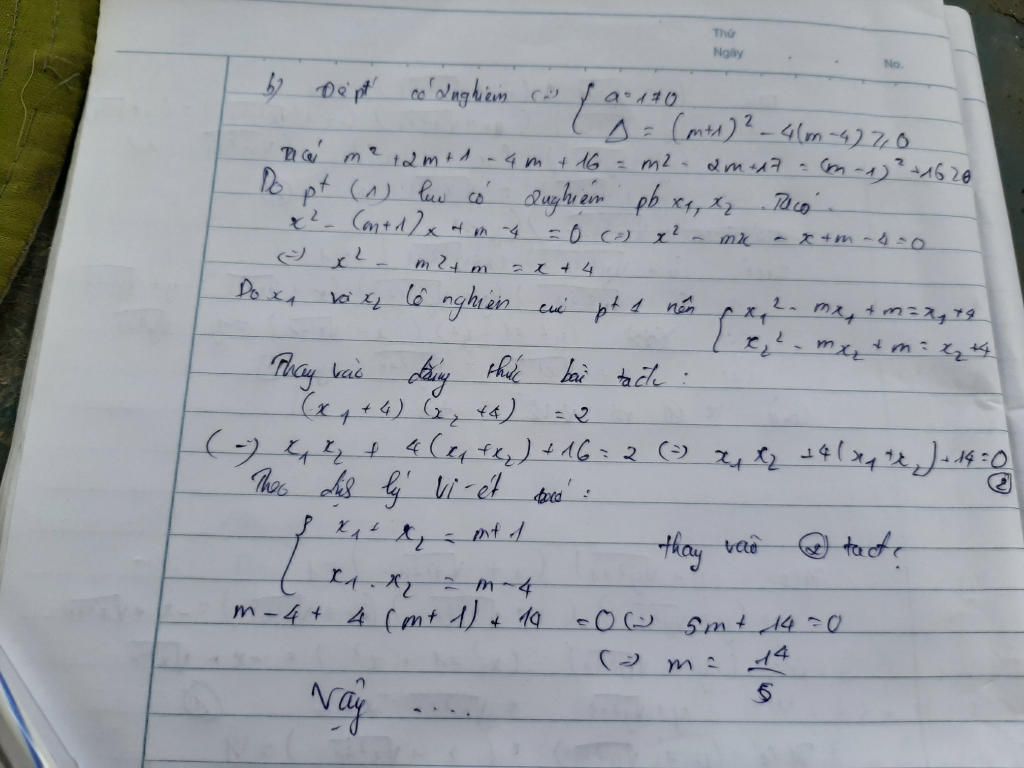 Thứ
Ngày
No.
b) Để pt có 2 nghiệm (=) { a = 1 ≠ 0
Δ = (m+1)² - 4(m-4) ≥ 0
Ta có m² + 2m + 1 - 4m + 16 = m² - 2m + 17 = (m-1)² + 16 ≥ 0
Do pt (1) luôn có 2 nghiệm pb x₁, x₂. Ta có
x² - (m+1)x + m - 4 = 0 (=) x² - mx - x + m - 4 = 0
(=) x² - m2 + m = x + 4
Do x₁ và x₂ là nghiệm của pt 1 nên { x₁² - mx₁ + m = x₁ + 4
x₂² - mx₂ + m = x₂ + 4
Thay vào đẳng thức bài ta đc :
(x₁ + 4) (x₂ + 4) = 2
(=) x₁ x₂ + 4(x₁ + x₂) + 16 = 2 (=) x₁ x₂ + 4(x₁ + x₂) + 14 = 0
②
Theo định lý Vi-ét ta có :
{ x₁ + x₂ = m + 1
x₁ . x₂ = m - 4 thay vào ② ta đc :
m - 4 + 4 (m + 1) + 14 = 0 (=) 5m + 14 = 0
(=) m = 14/5
Vậy ....